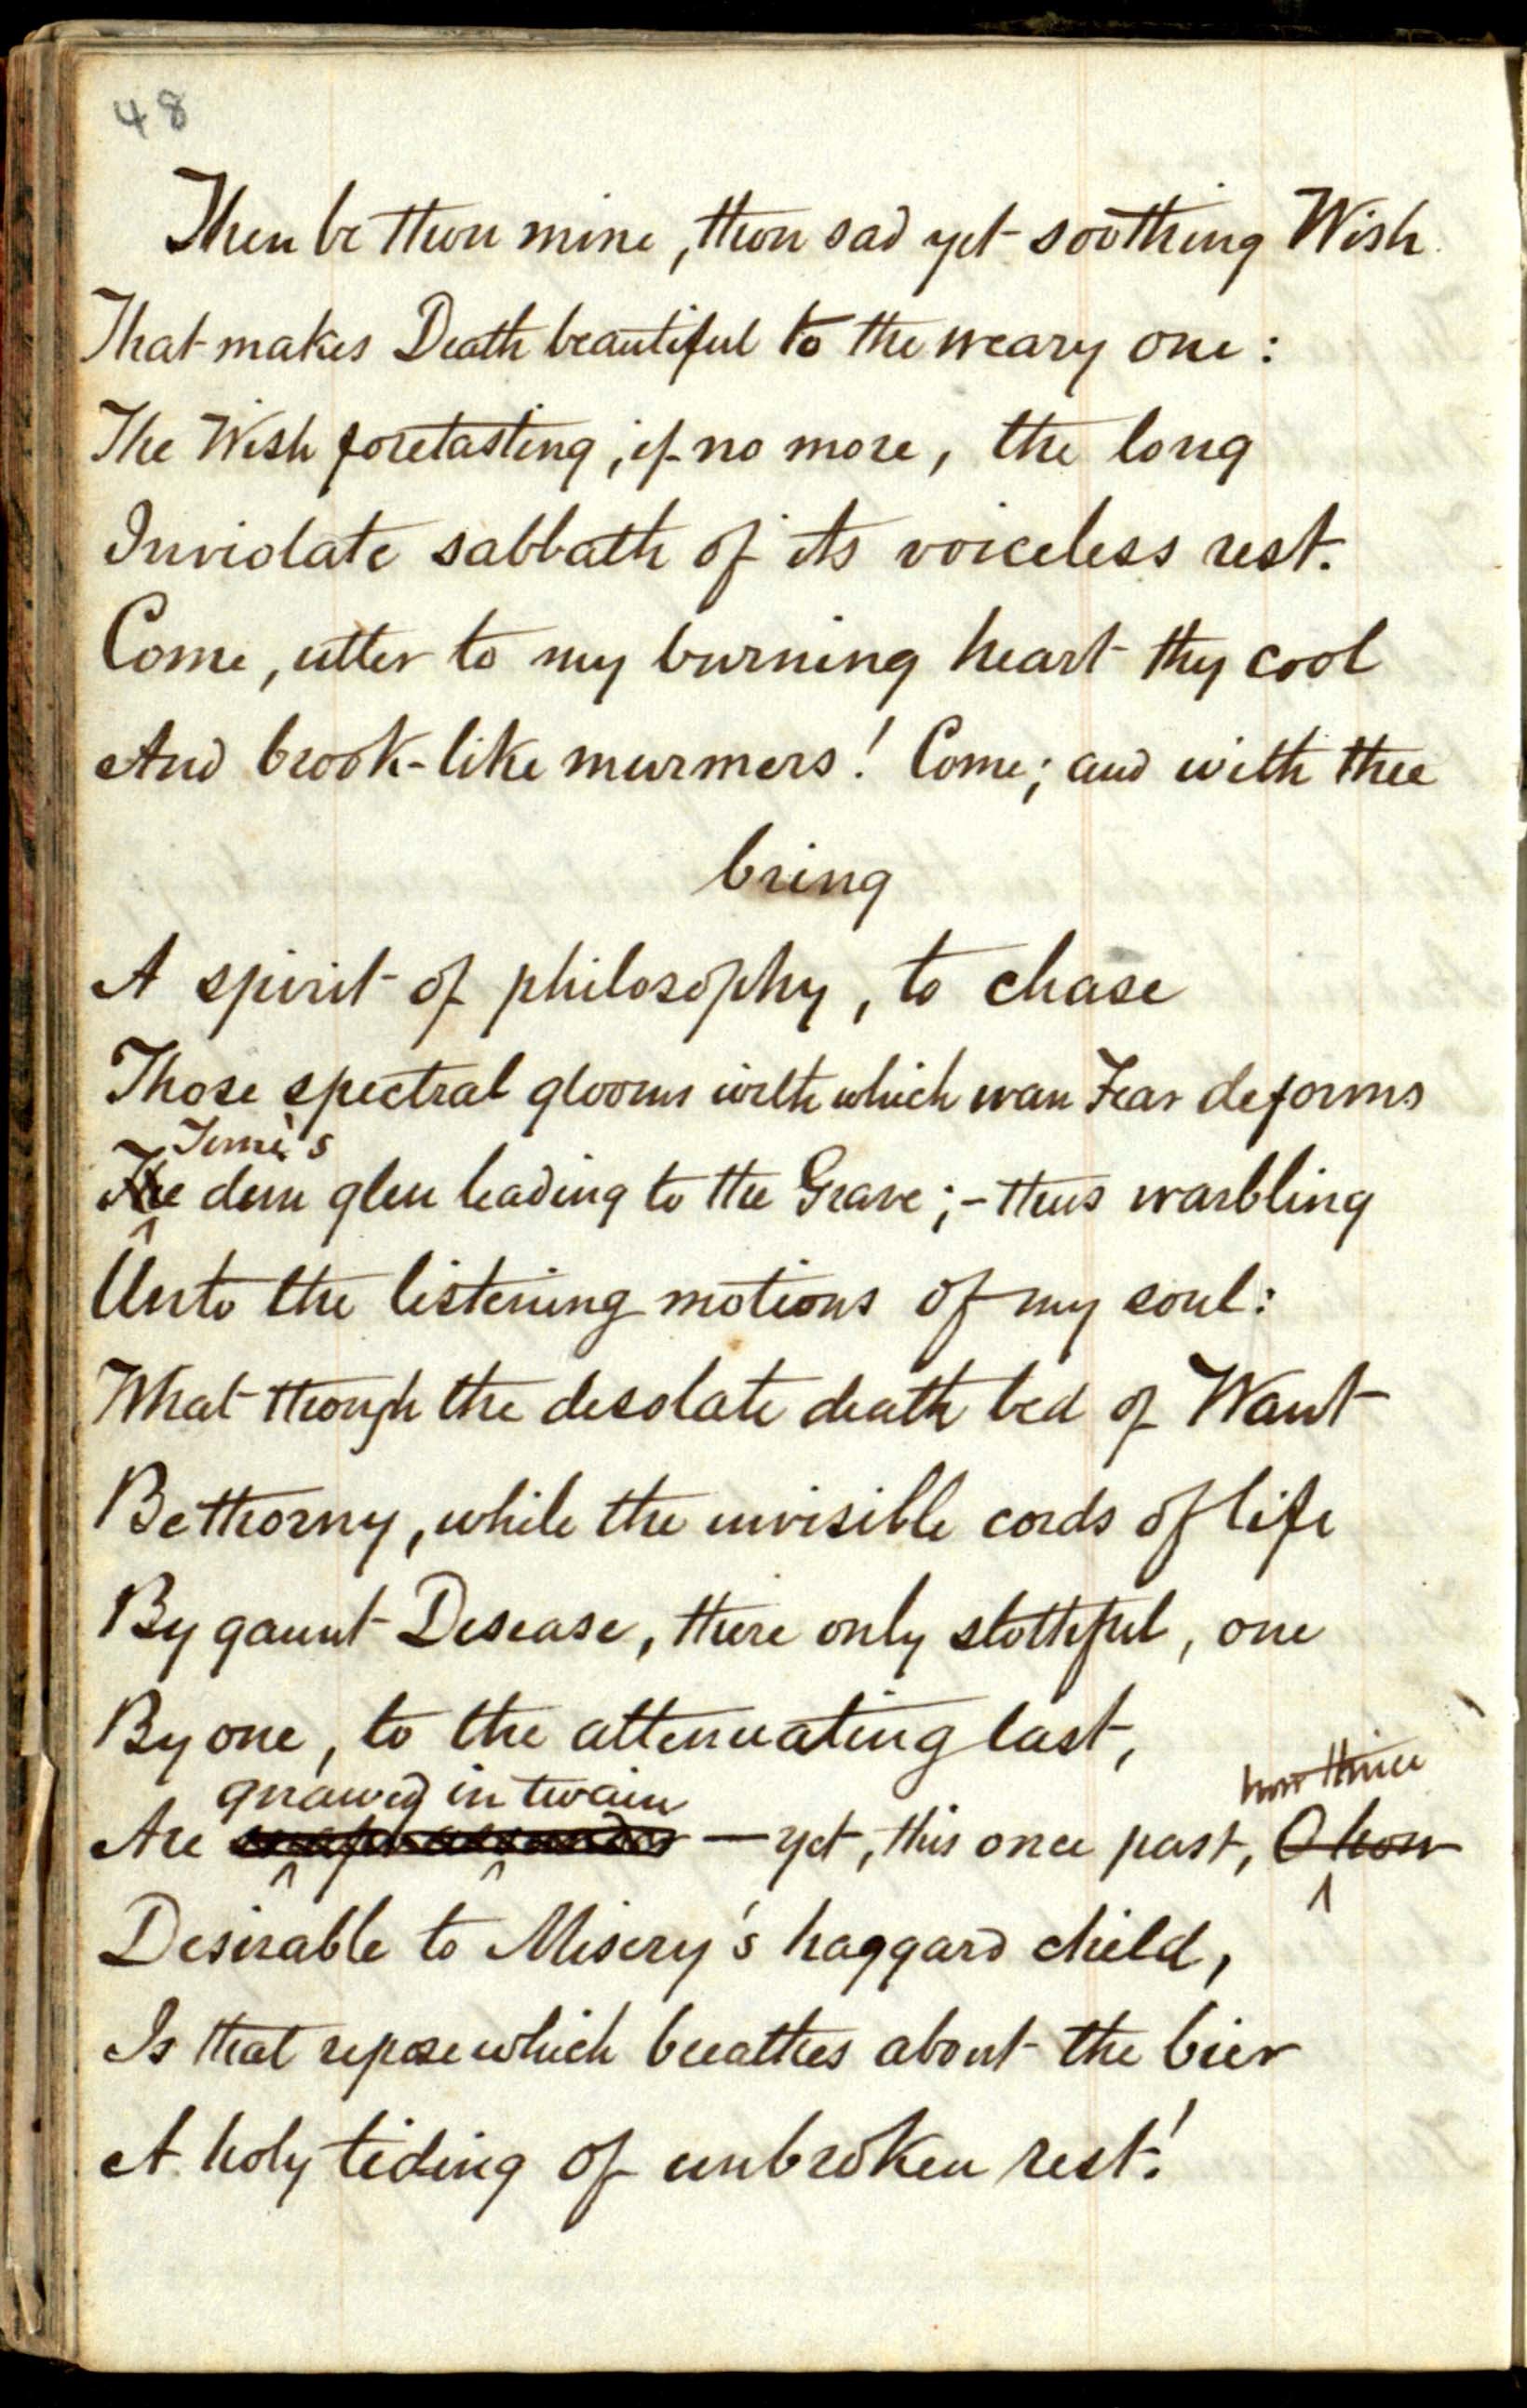 48
Then be thou mine, thou sad yet soothing Wish
That makes Death beautiful to the weary one:
The Wish foretasting, if no more, the long
Inviolate sabbath of its voiceless rest.
Come, utter to my burning heart thy cool
And brook-like murmers! Come; and with thee
bring
A spirit of philosophy, to chase
Those spectral glooms with which wan Fear deforms
Time's
The dim glen leading to the Grave;—thus warbling
Unto the listening motions of my soul:
What though the desolate death bed of Want
Be thorny, while the invisible cords of life
By gaunt Disease, there only slothful, one
By one, to the attenuating last,
gnawed in twain how thrice
Are — yet, this once past, O how
Desirable to Misery's haggard child,
Is that repose which breathes about the bier
A holy tiding of unbroken rest!